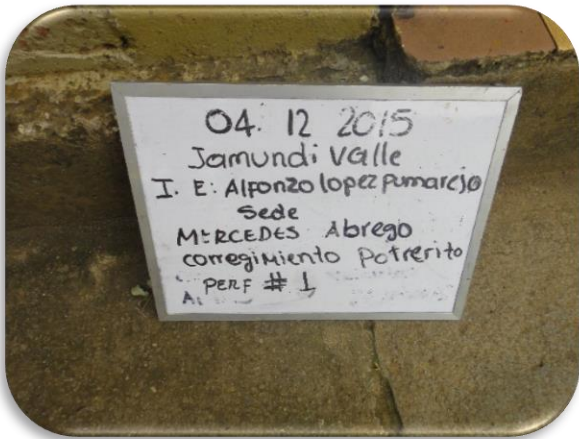 04. 12 2015
Jamundi Valle
I. E. Alfonzo lopez pumarejo
Sede
MERCEDES Abrego
corregimiento Potrerito
PERF # 1
A